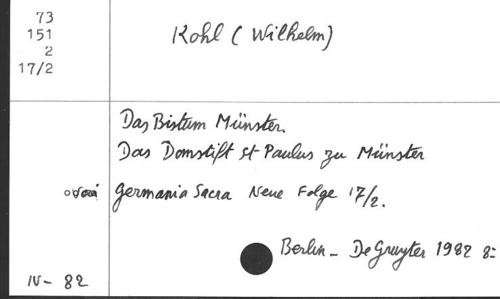 73
151
2
17/2
Kohl (Wilhelm)
Das Bistum Münster.
Das Domstift St Paulus zu Münster
Germania Sacra Neue Folge 17/2.
Berlin - De Gruyter 1982 8=
IV - 82